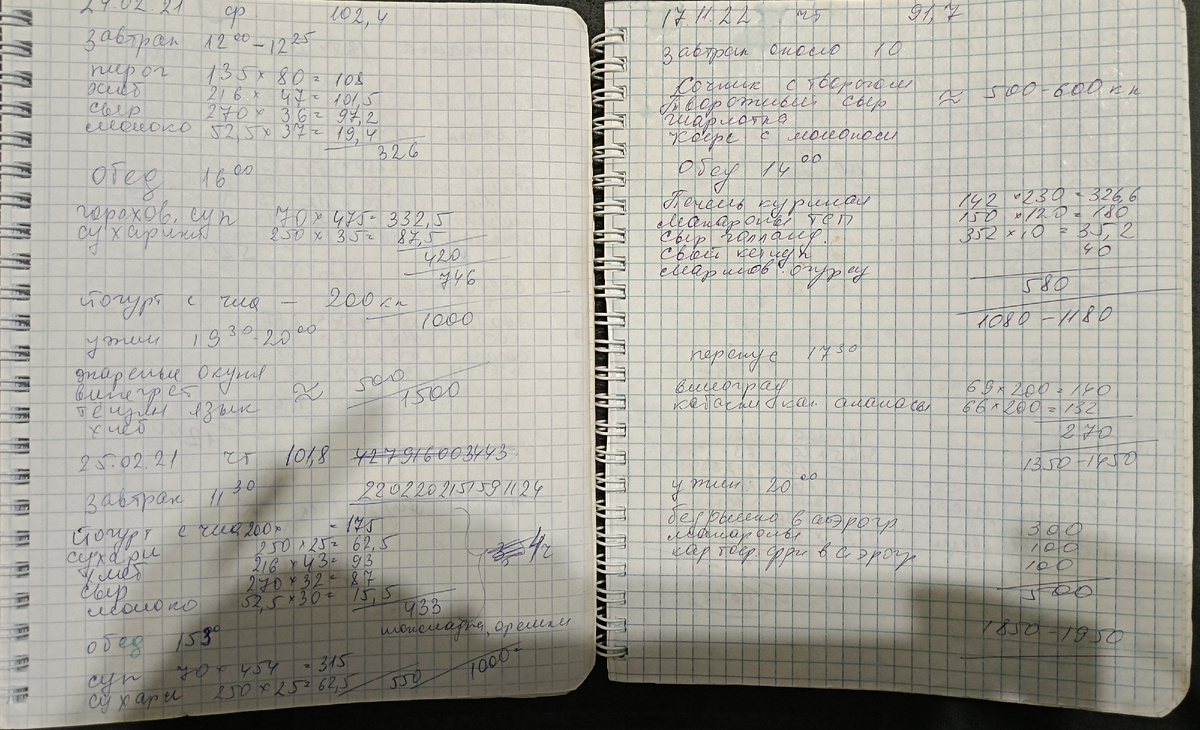 24.02.21 ср 102,4
Завтрак 12 00 – 12 25
пирог 135 × 80 = 108
хлеб 216 × 47 = 101,5
сыр 270 × 36 = 97,2
молоко 52,5 × 37 = 19,4
326
Обед 16 00
горохов. суп 70 × 475 = 332,5
сухарики 250 × 35 = 87,5
420
746
йогурт с чиа – 200 кк
1000
ужин 19 30 - 20 00
жареные окуни
винегрет ≈ 500
телячий язык 1500
хлеб
25.02.21 чт 101,8 427916003443
Завтрак 11 30 2202202151591124
йогурт с чиа 200 × = 175
сухари 250 × 25 = 62,5
хлеб 216 × 43 = 93
сыр 270 × 32 = 87
молоко 52,5 × 30 = 15,5
4ч
433
обед 15 30 шоколадка, орешки
суп 70 × 454 = 315
сухари 250 × 25 = 62,5 550 1000
17.11.22 чт 91,7
Завтрак около 10
Сочник с творогом
Творожный сыр ≈ 500 - 600 кк
шарлотка
кофе с молоком
Обед 14 00
Печень куриная 142 × 230 = 326,6
макароны 150 × 120 = 180
сыр голланд. 352 × 10 = 35,2
свой кетчуп 40
маринов огурец
580
1080 – 1180
перекус 17 30
виноград 69 × 200 = 140
66 × 200 = 132
270
1350 - 1450
ужин 20 00
бедрышко в аэрогр 300
макароны 100
картоф. фри в аэрогр 100
500
1850 - 1950